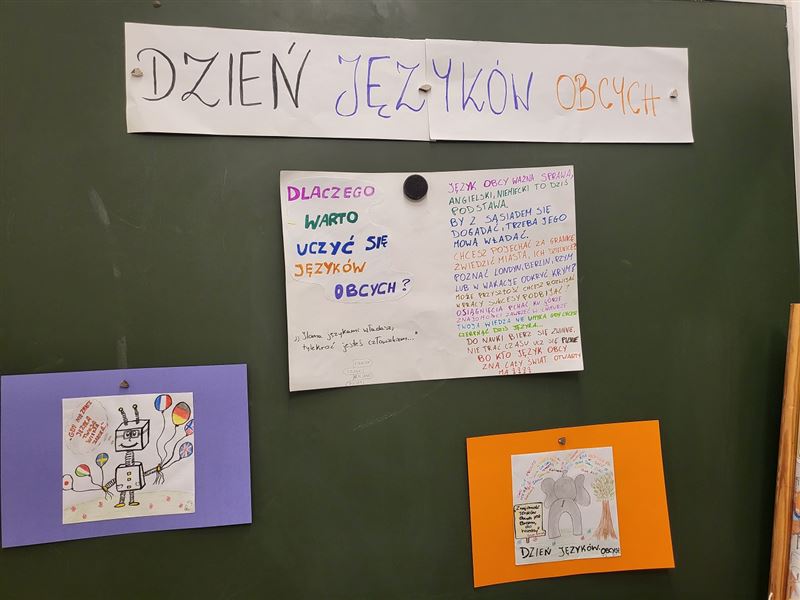 DZIEŃ JĘZYKÓW OBCYCH
DLACZEGO
WARTO
UCZYĆ SIĘ
JĘZYKÓW
OBCYCH?
językami władasz,
jesteś człowiekiem..."
JĘZYK OBCY WAŻNA SPRAWA,
ANGIELSKI, NIEMIECKI TO DZIŚ
PODSTAWA.
BY Z SĄSIADEM SIĘ
DOGADAĆ, TRZEBA JEGO
MOWĄ WŁADAĆ.
CHCESZ POJECHAĆ ZA GRANICĘ
ZWIEDZIĆ MIASTA, ICH
POZNAĆ LONDYN, BERLIN, RZYM
LUB W WAKACJE ODKRYĆ KRYM?
MOŻE PRZYSZŁOŚĆ CHCESZ ROZWIJAĆ
W PRACY SUKCESY PODBIJAĆ?
OSIĄGNIĘCIA PCHAĆ KU GÓRZE
ZNAJOMOŚCI ZAWRZEĆ W CHMURZE
TWOJA WIEDZA NIE UMYKA GDY CHCESZ
DZIŚ JĘZYKA...
DO NAUKI BIERZ SIĘ ZWINNE,
NIE TRAĆ CZASU UCZ SIĘ PILNIE
BO KTO JĘZYK OBCY
ZNA CAŁY ŚWIAT OTWARTY
MA !!!!
DZIEŃ JĘZYKÓW OBCYCH